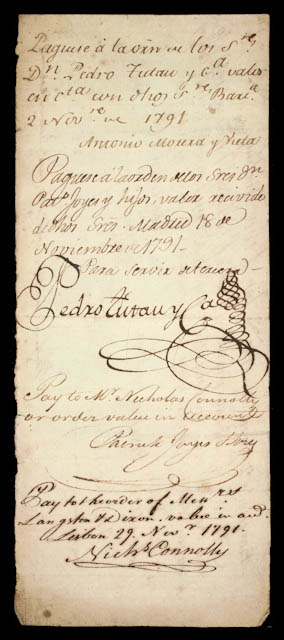 Paguese à la orn de los Sres
Dn Pedro Tutau y Ca. valor
en cta con dhos Sres Bara.
2 Novre de 1791
Antonio Moura y Viita
Paguese a la orden de los Sres Dn
Pato Joyes y hijos, valor recivido
de dhos Sres. Madrid 18 de
Noviembre de 1791-
Para servir de tercera -
Pedro Tutau y Ca
Pay to Mr Nicholas Connolly
or order value in account
Joyes & Sons
Pay to the order of Messrs
Langston & Dixon, value in acct.
Lisbon 29. Novr 1791.
Nichs Connolly